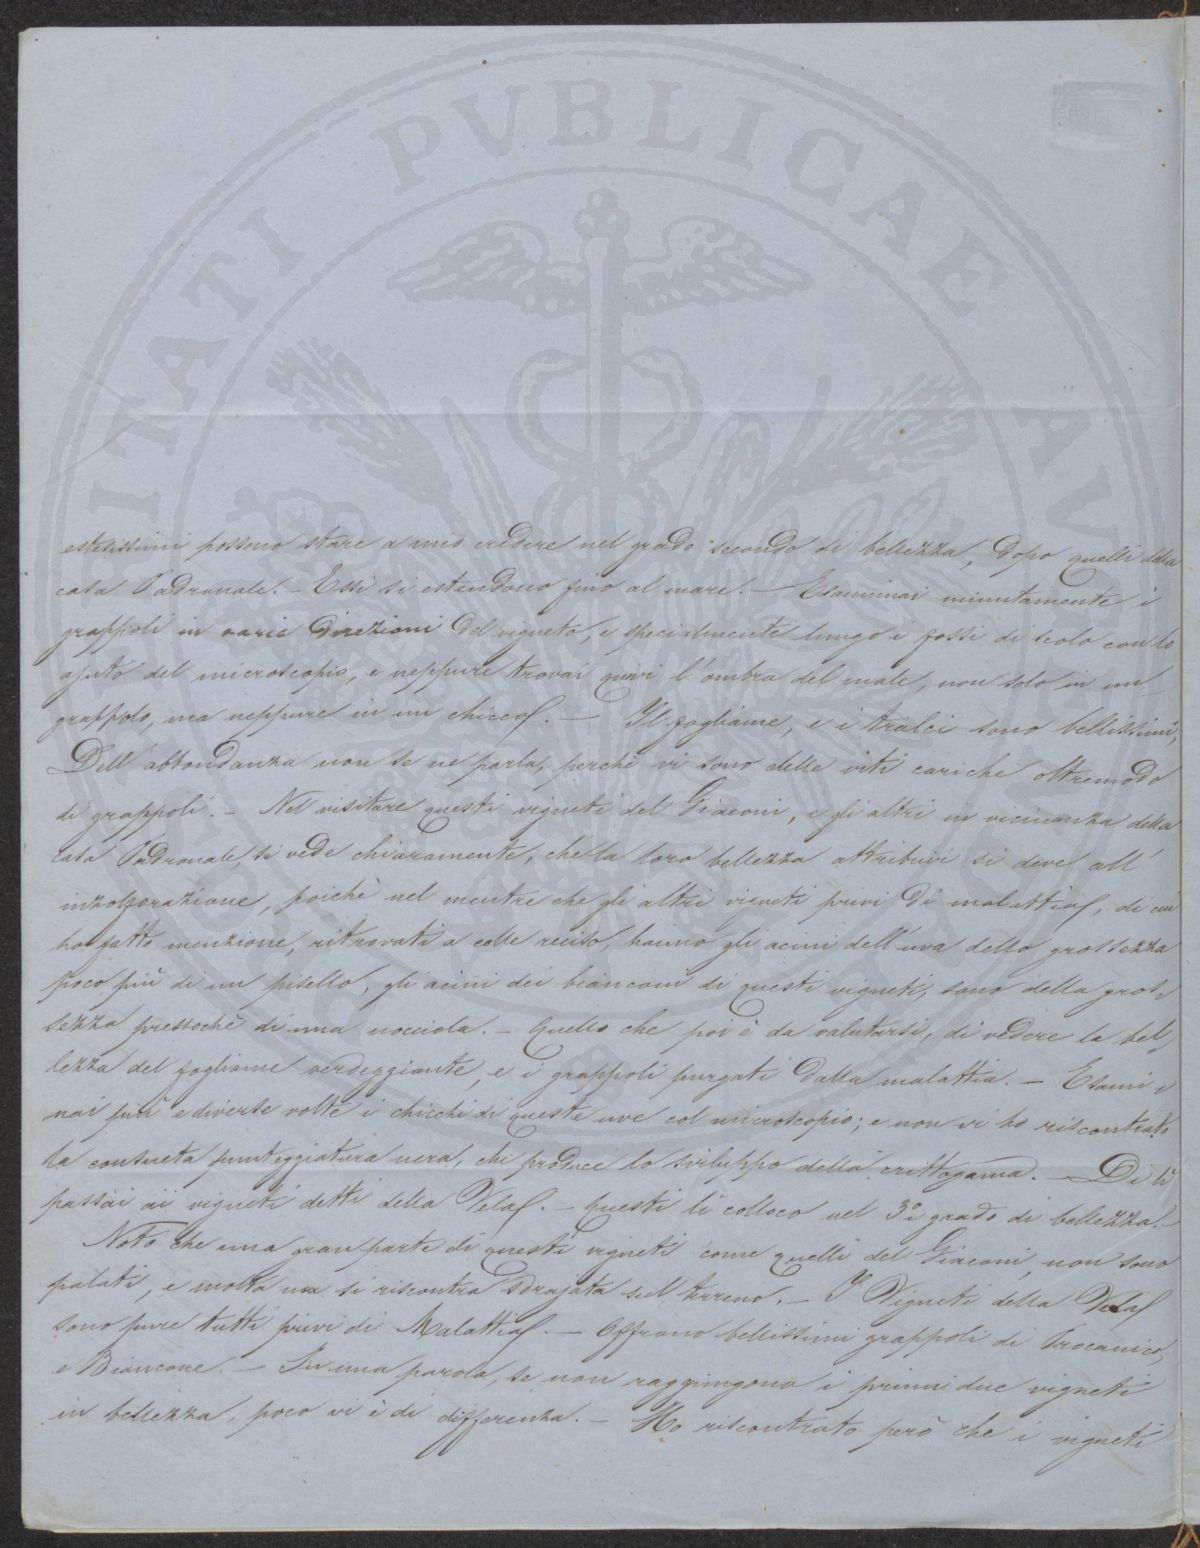 VTILITATI PVBLICAE AV
estesissimi possono stare a mio credere nel grado secondo di bellezza, dopo quelli della
casa Padronale. — Essi si estendono fino al mare. — Esaminai minutamente i
grappoli in varie direzioni del vigneto, e specialmente lungo i fossi di scolo con lo
ajuto del microscopio, e neppure trovai quivi l'ombra del male, non solo in un
grappolo, ma neppure in un chicco. — Il fogliame, e i tralci sono bellissimi,
Dell'abbondanza non se ne parla, perchè vi sono delle viti cariche oltremodo
di grappoli. — Nel visitare questi vigneti del Giaconi, e gli altri in vicinanza della
casa Padronale, si vede chiaramente, che la loro bellezza attribuir si deve all'
inzolforazione, poichè nel mentre che gli altri vigneti privi di malattia, di cui
ho fatto menzione, ritrovati a colle reciso, hanno gli acini dell'uva della grossezza
poco più di un pisello, gli acini dei bianconi di questi vigneti, sono della gros,
sezza pressochè di una nocciola. — Quello che poi è da valutarsi, di vedere la bel,
lezza del fogliame verdeggiante, e i grappoli purgati dalla malattia. — Esami,
nai più e diverse volte i chicchi di queste uve col microscopio; e non vi ho riscontrato
la consueta punteggiatura nera, che produce lo sviluppo della crittogama. — Di lì
passai ai vigneti detti della Vela. — Questi li colloco nel 3° grado di bellezza. —
Noto che una gran parte di questi vigneti come quelli del Giaconi, non sono
palati, e molta uva si riscontra sdrajata sul terreno. — I Vigneti della Vela
sono pure tutti privi di Malattia. — Offrono bellissimi grappoli di Procanico,
e Biancone. — In una parola, se non raggiungono i primi due vigneti
in bellezza, poco vi è di differenza. — Ho riscontrato però che i vigneti